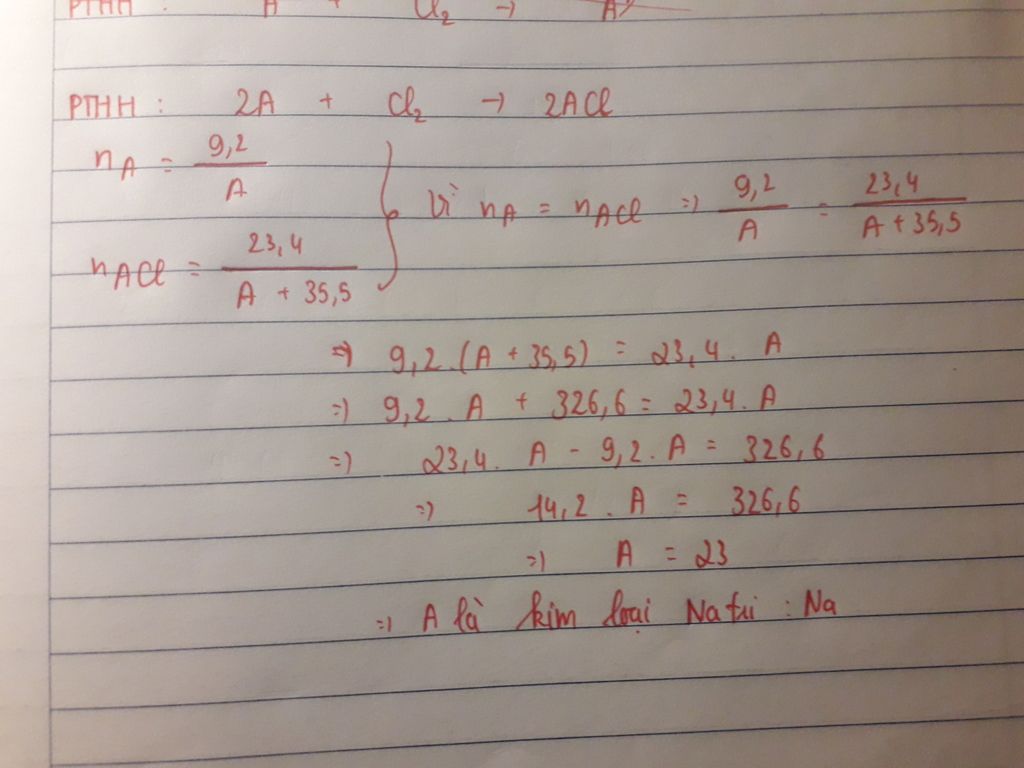 PTHH : A + Cl₂ → A
PTHH : 2A + Cl₂ → 2ACl
n_A = 9,2 / A
n_ACl = 23,4 / (A + 35,5)
} Vì n_A = n_ACl => 9,2 / A = 23,4 / (A + 35,5)
=> 9,2.(A + 35,5) = 23,4. A
=> 9,2. A + 326,6 = 23,4. A
=> 23,4. A - 9,2. A = 326,6
=> 14,2. A = 326,6
=> A = 23
=> A là kim loại Natri : Na